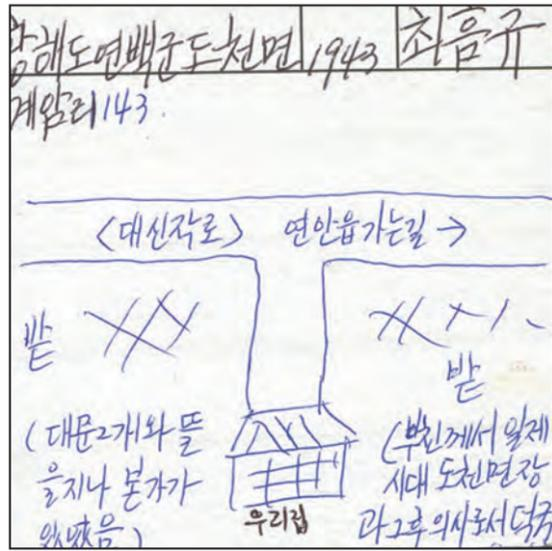 황해도연백군도천면 1943 최음규
계암리143
<대신작로> 연안읍가는길 →
밭
밭
(대문2개와 뜰
을지나 본가가
있었음)
우리집
(부친께서 일제
시대 도천면장
과그후 의사로서 덕굴